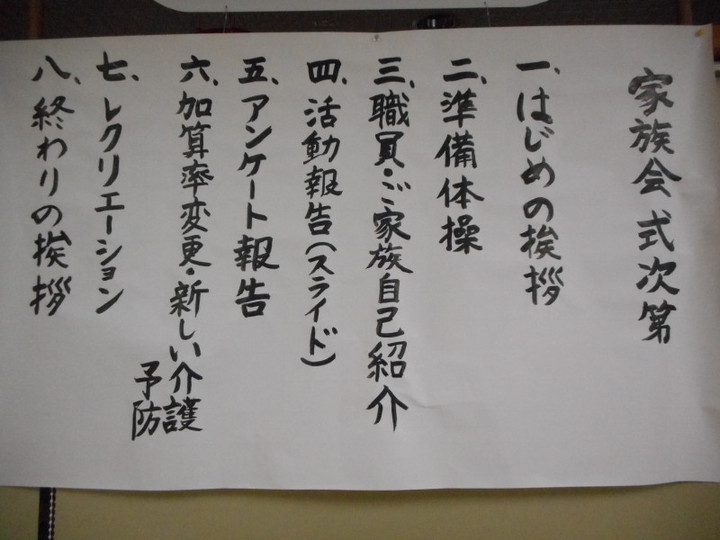 家族会式次第
一、はじめの挨拶
二、準備体操
三、職員・ご家族自己紹介
四、活動報告(スライド)
五、アンケート報告
六、加算率変更・新しい介護
予防
七、レクリエーション
八、終わりの挨拶